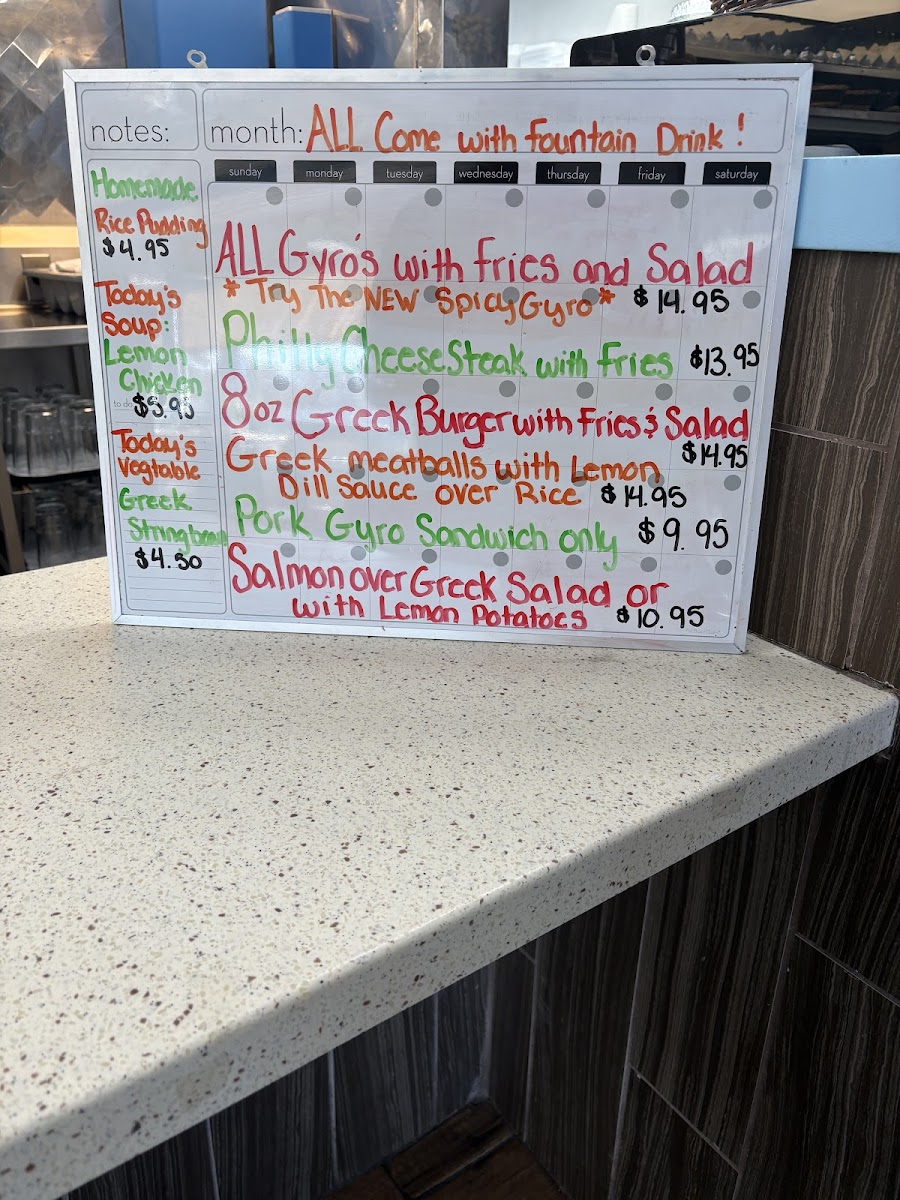 notes:
month: ALL Come with fountain Drink!
sunday monday tuesday wednesday thursday friday saturday
Homemade
Rice Pudding
$4.95
Today's
Soup:
Lemon
Chicken
$5.95
Today's
Vegtable
Greek
Stringbean
$4.50
ALL Gyro's with fries and Salad
*Try The NEW Spicy Gyro* $14.95
Philly Cheese Steak with fries $13.95
8oz Greek Burger with Fries & Salad
$14.95
Greek meatballs with Lemon
Dill Sauce over Rice $14.95
Pork Gyro Sandwich only $9.95
Salmon over Greek Salad or
with Lemon Potatoes $10.95